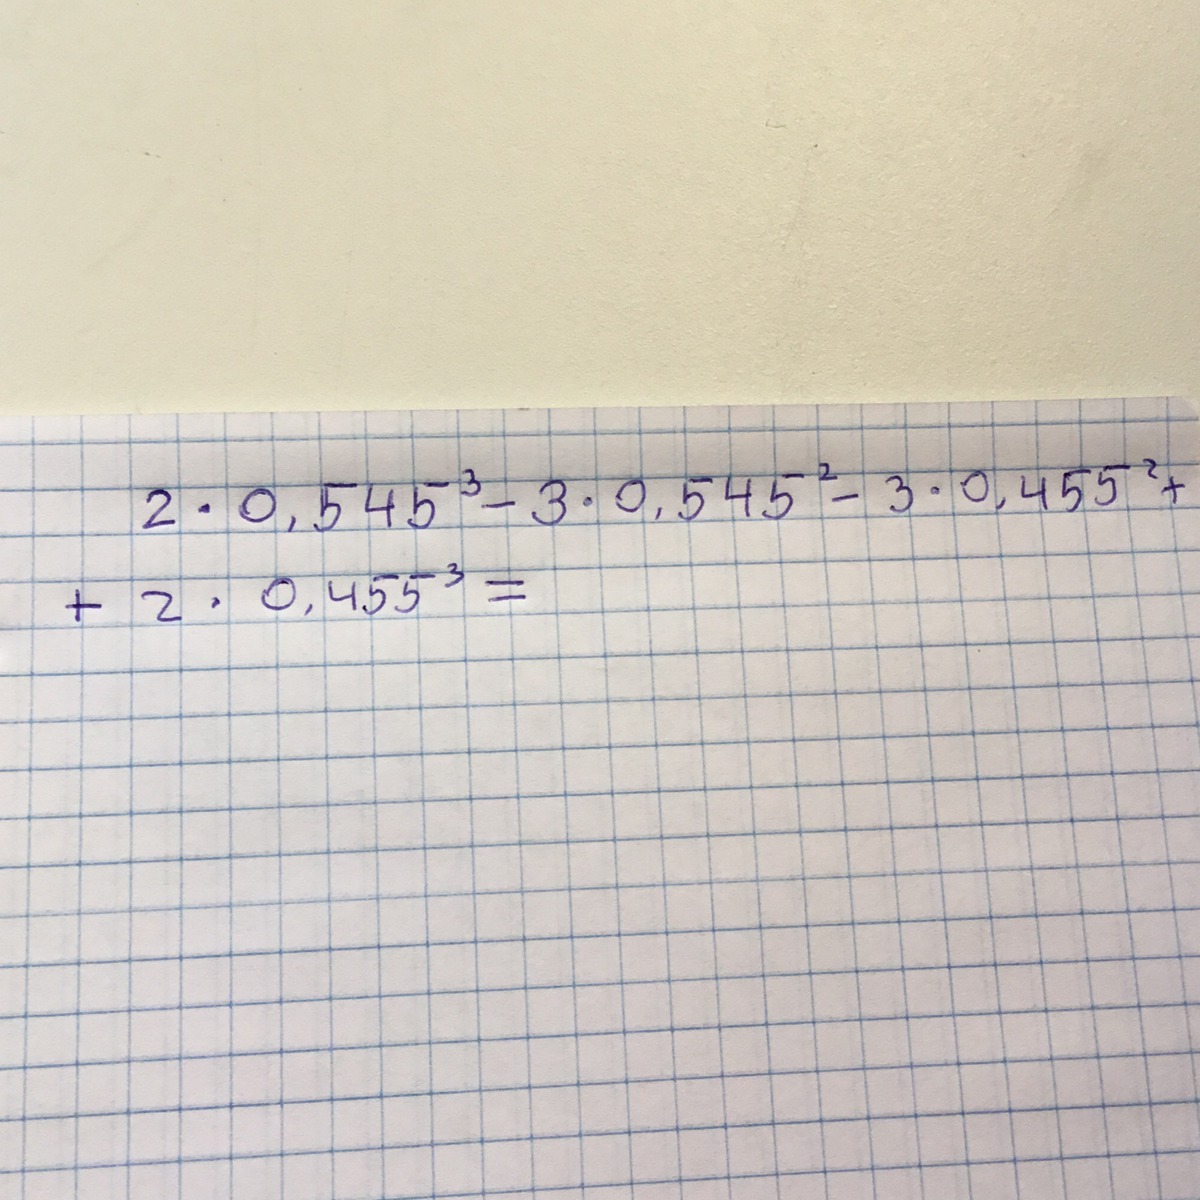 2 · 0,545³ - 3 · 0,545² - 3 · 0,455² +
+ 2 · 0,455³ =